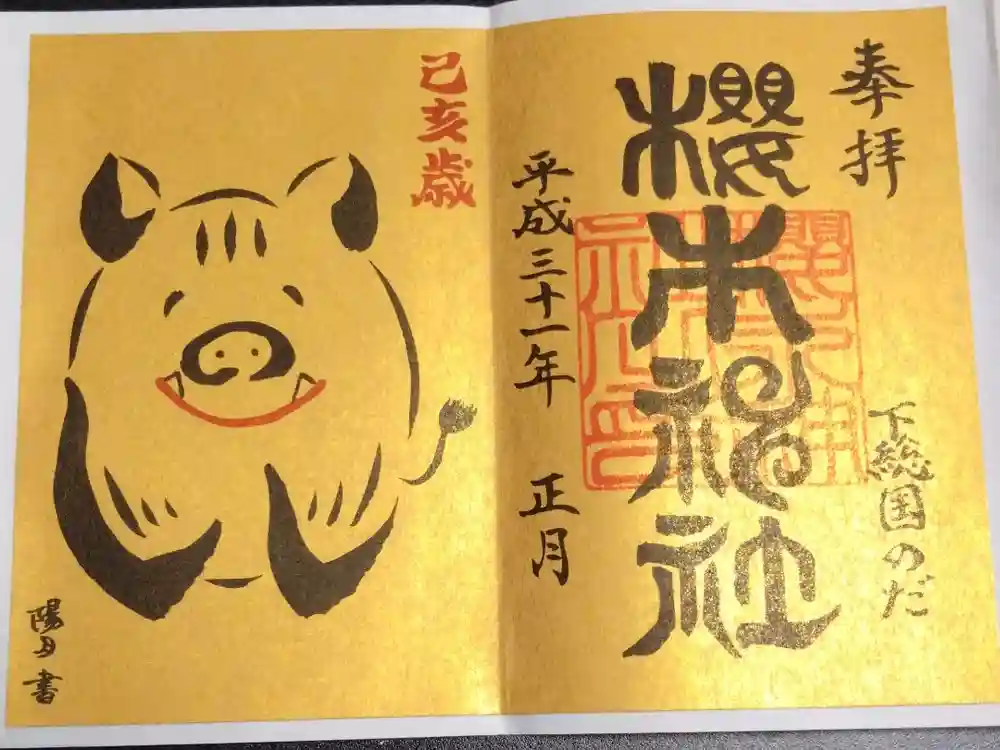 奉拝
下総国のだ
櫻木神社
平成三十一年 正月
己亥歳
陽月書